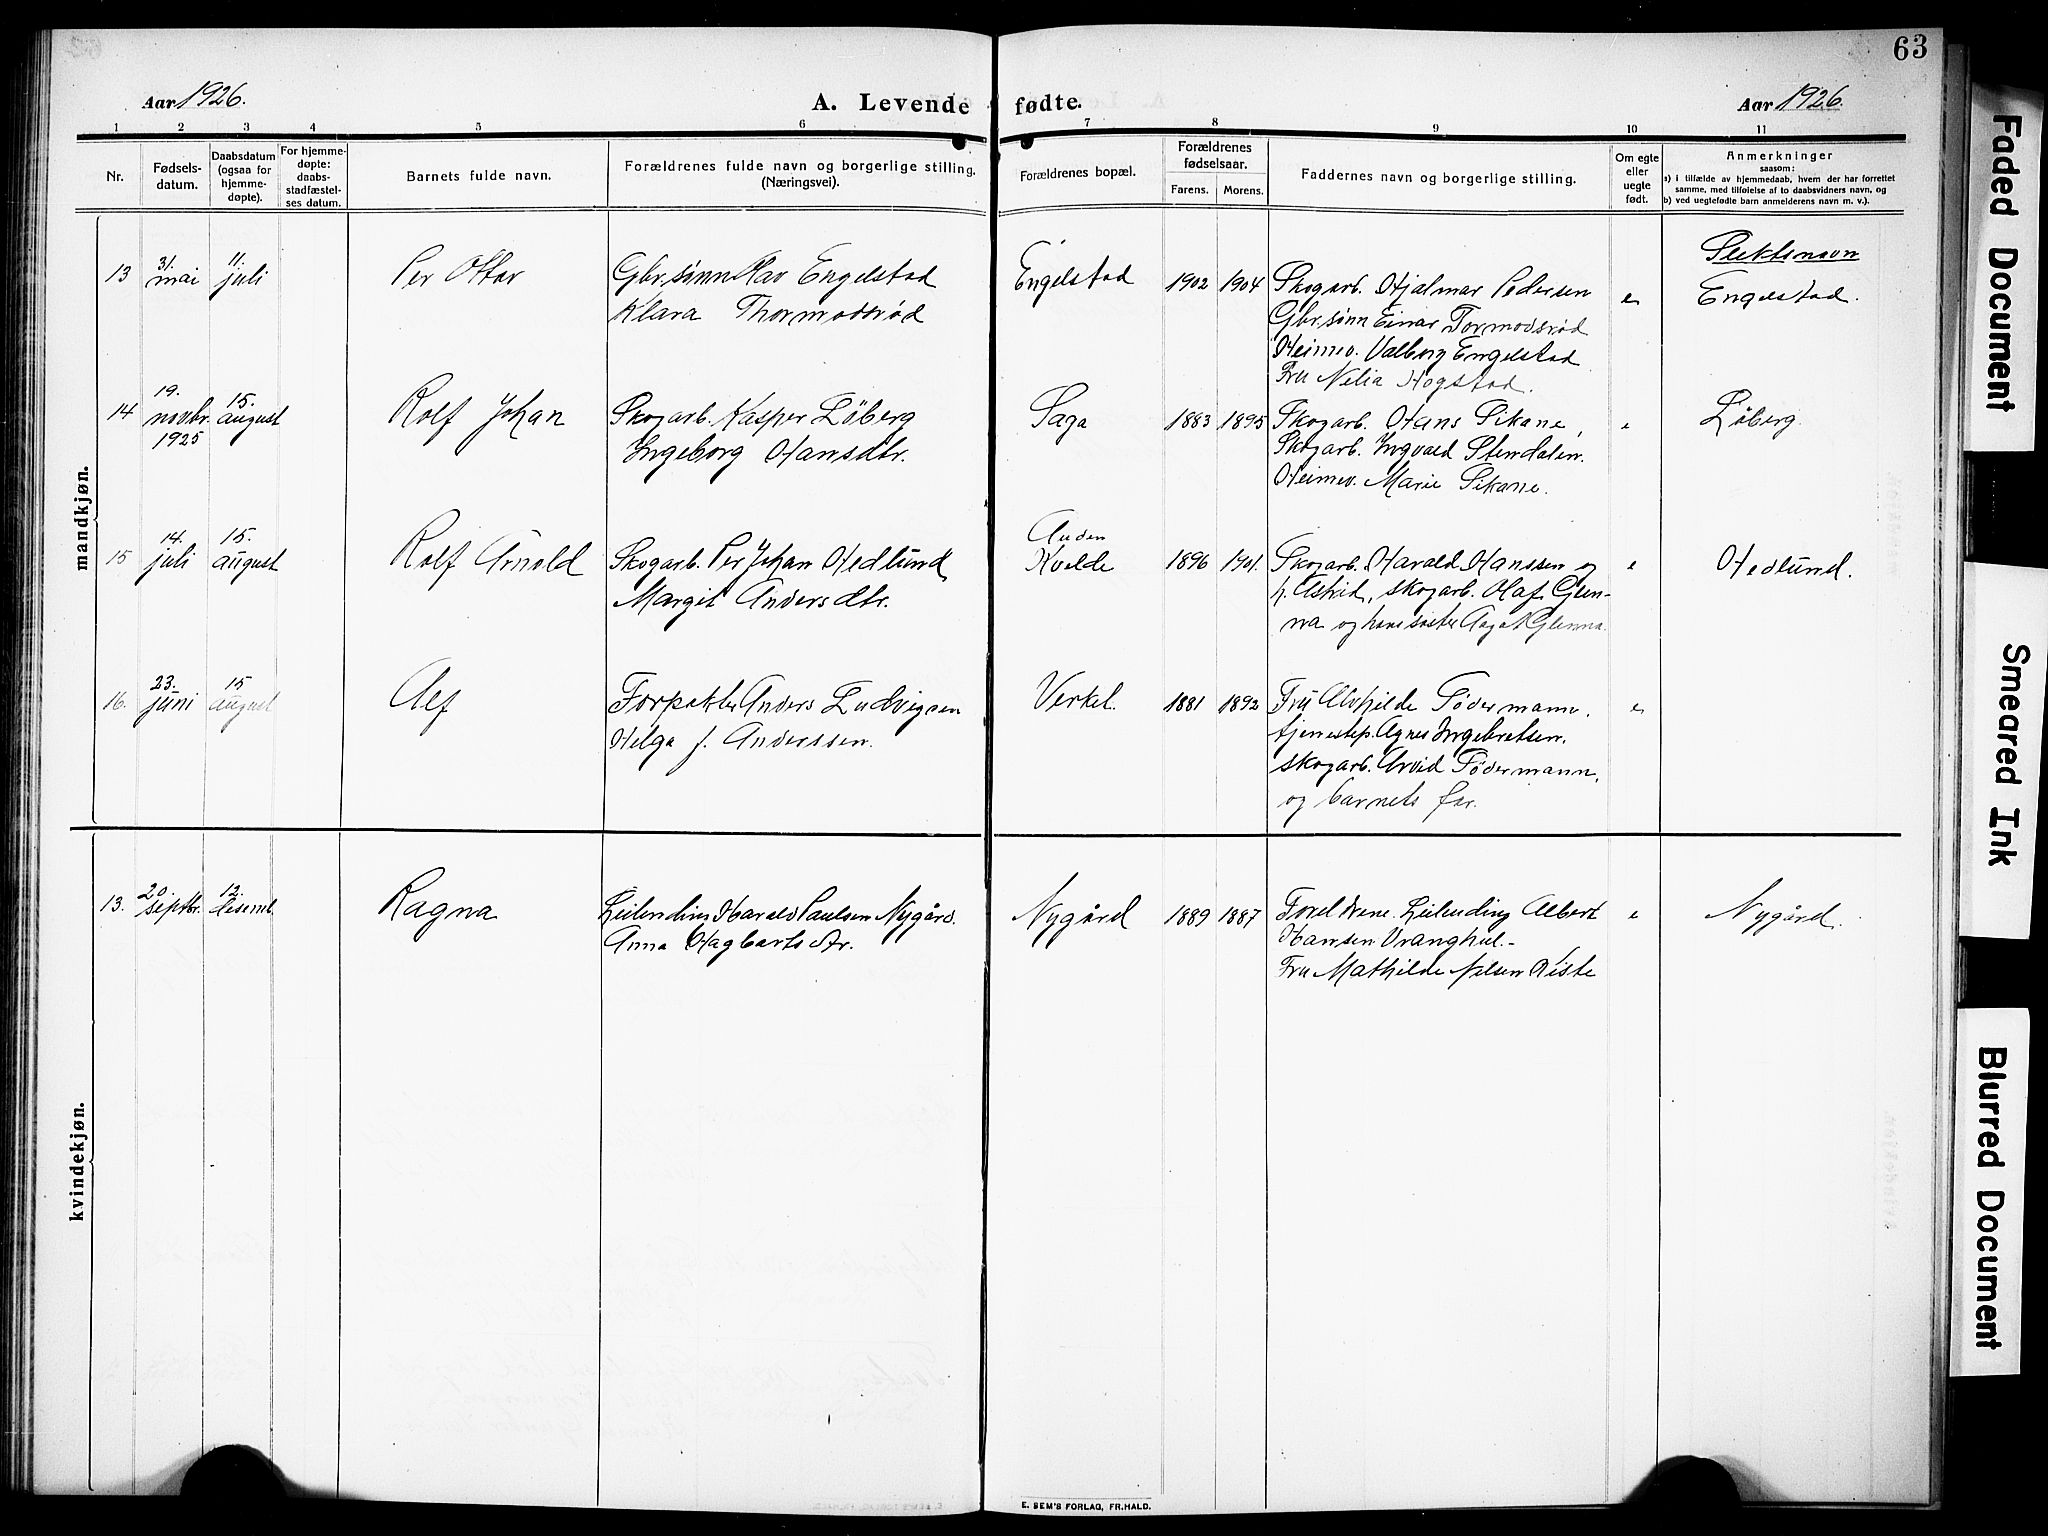 63
Aar 1926.
A. Levende fødte.
Aar 1926.
1 2 3 4 5 6 7 8 9 10 11
Nr.
Fødsels-
datum.
Daabsdatum
(ogsaa for
hjemme-
døpte).
For hjemme-
døpte:
daabs-
stadfæstel-
ses datum.
Barnets fulde navn.
Forældrenes fulde navn og borgerlige stilling.
(Næringsvei).
Forældrenes bopæl.
Forældrenes
fødselsaar.
Farens. Morens.
Faddernes navn og borgerlige stilling.
Om egte
eller
uegte
født.
Anmerkninger
saasom:
a) i tilfælde av hjemmedaab, hvem der har forrettet
samme, med tilføielse af to daabsvidners navn, og
b) ved uegtefødte barn anmelderens navn m. v.).
mandkjøn.
13
31.
mai
11.
juli
Per Ottar
Gbr.sønn Olav Engelstad
Klara Thormodsrød
Engelstad
1902 1904
Skogarb. Hjalmar Pedersen
Gbr.sønn Einar Tormodsrød
Heimev. Valborg Engelstad
Fru Nelia Hogstad.
e
Slektsnavn
Engelstad.
14
19.
novbr.
1925
15.
august
Rolf Johan
Skogarb. Kasper Løberg
Ingeborg Hansdtr.
Saga
1883 1895
Skogarb. Hans Sikane,
Skogarb. Ingvald Stendalen.
Heimev. Marie Sikane.
e
Løberg.
15
14.
juli
15.
august
Rolf Arnold
Skogarb. Per Johan Hedlund
Margit Andersdtr.
Auden
Kvelde
1896 1901.
Skogarb. Harald Hanssen og
h. Astrid, skogarb. Olaf Glen-
na og hans søster Aagot Glenna.
e
Hedlund.
16.
23.
juni
15
august
Alf
Forpakter Anders Ludvigsen
Helga f. Anderssen.
Verkel.
1881 1892
Fru Alvhilde Födermann.
tjenestep. Agnes Ingebretsen.
skogarb. Arvid Födermann.
og barnets far.
e
kvindekjøn.
13.
20
septbr.
12.
desemb.
Ragna
Leilending Harald Paulsen Nygård.
Anna Hagbartsdtr.
Nygård
1889 1887
Foreldrene. Leilending Albert
Hansen Vranghul.-
Fru Mathilde Nilsen Riste
e
Nygård.
E. SEM'S FORLAG, FR.HALD.
Faded Document
Smeared Ink
Blurred Document